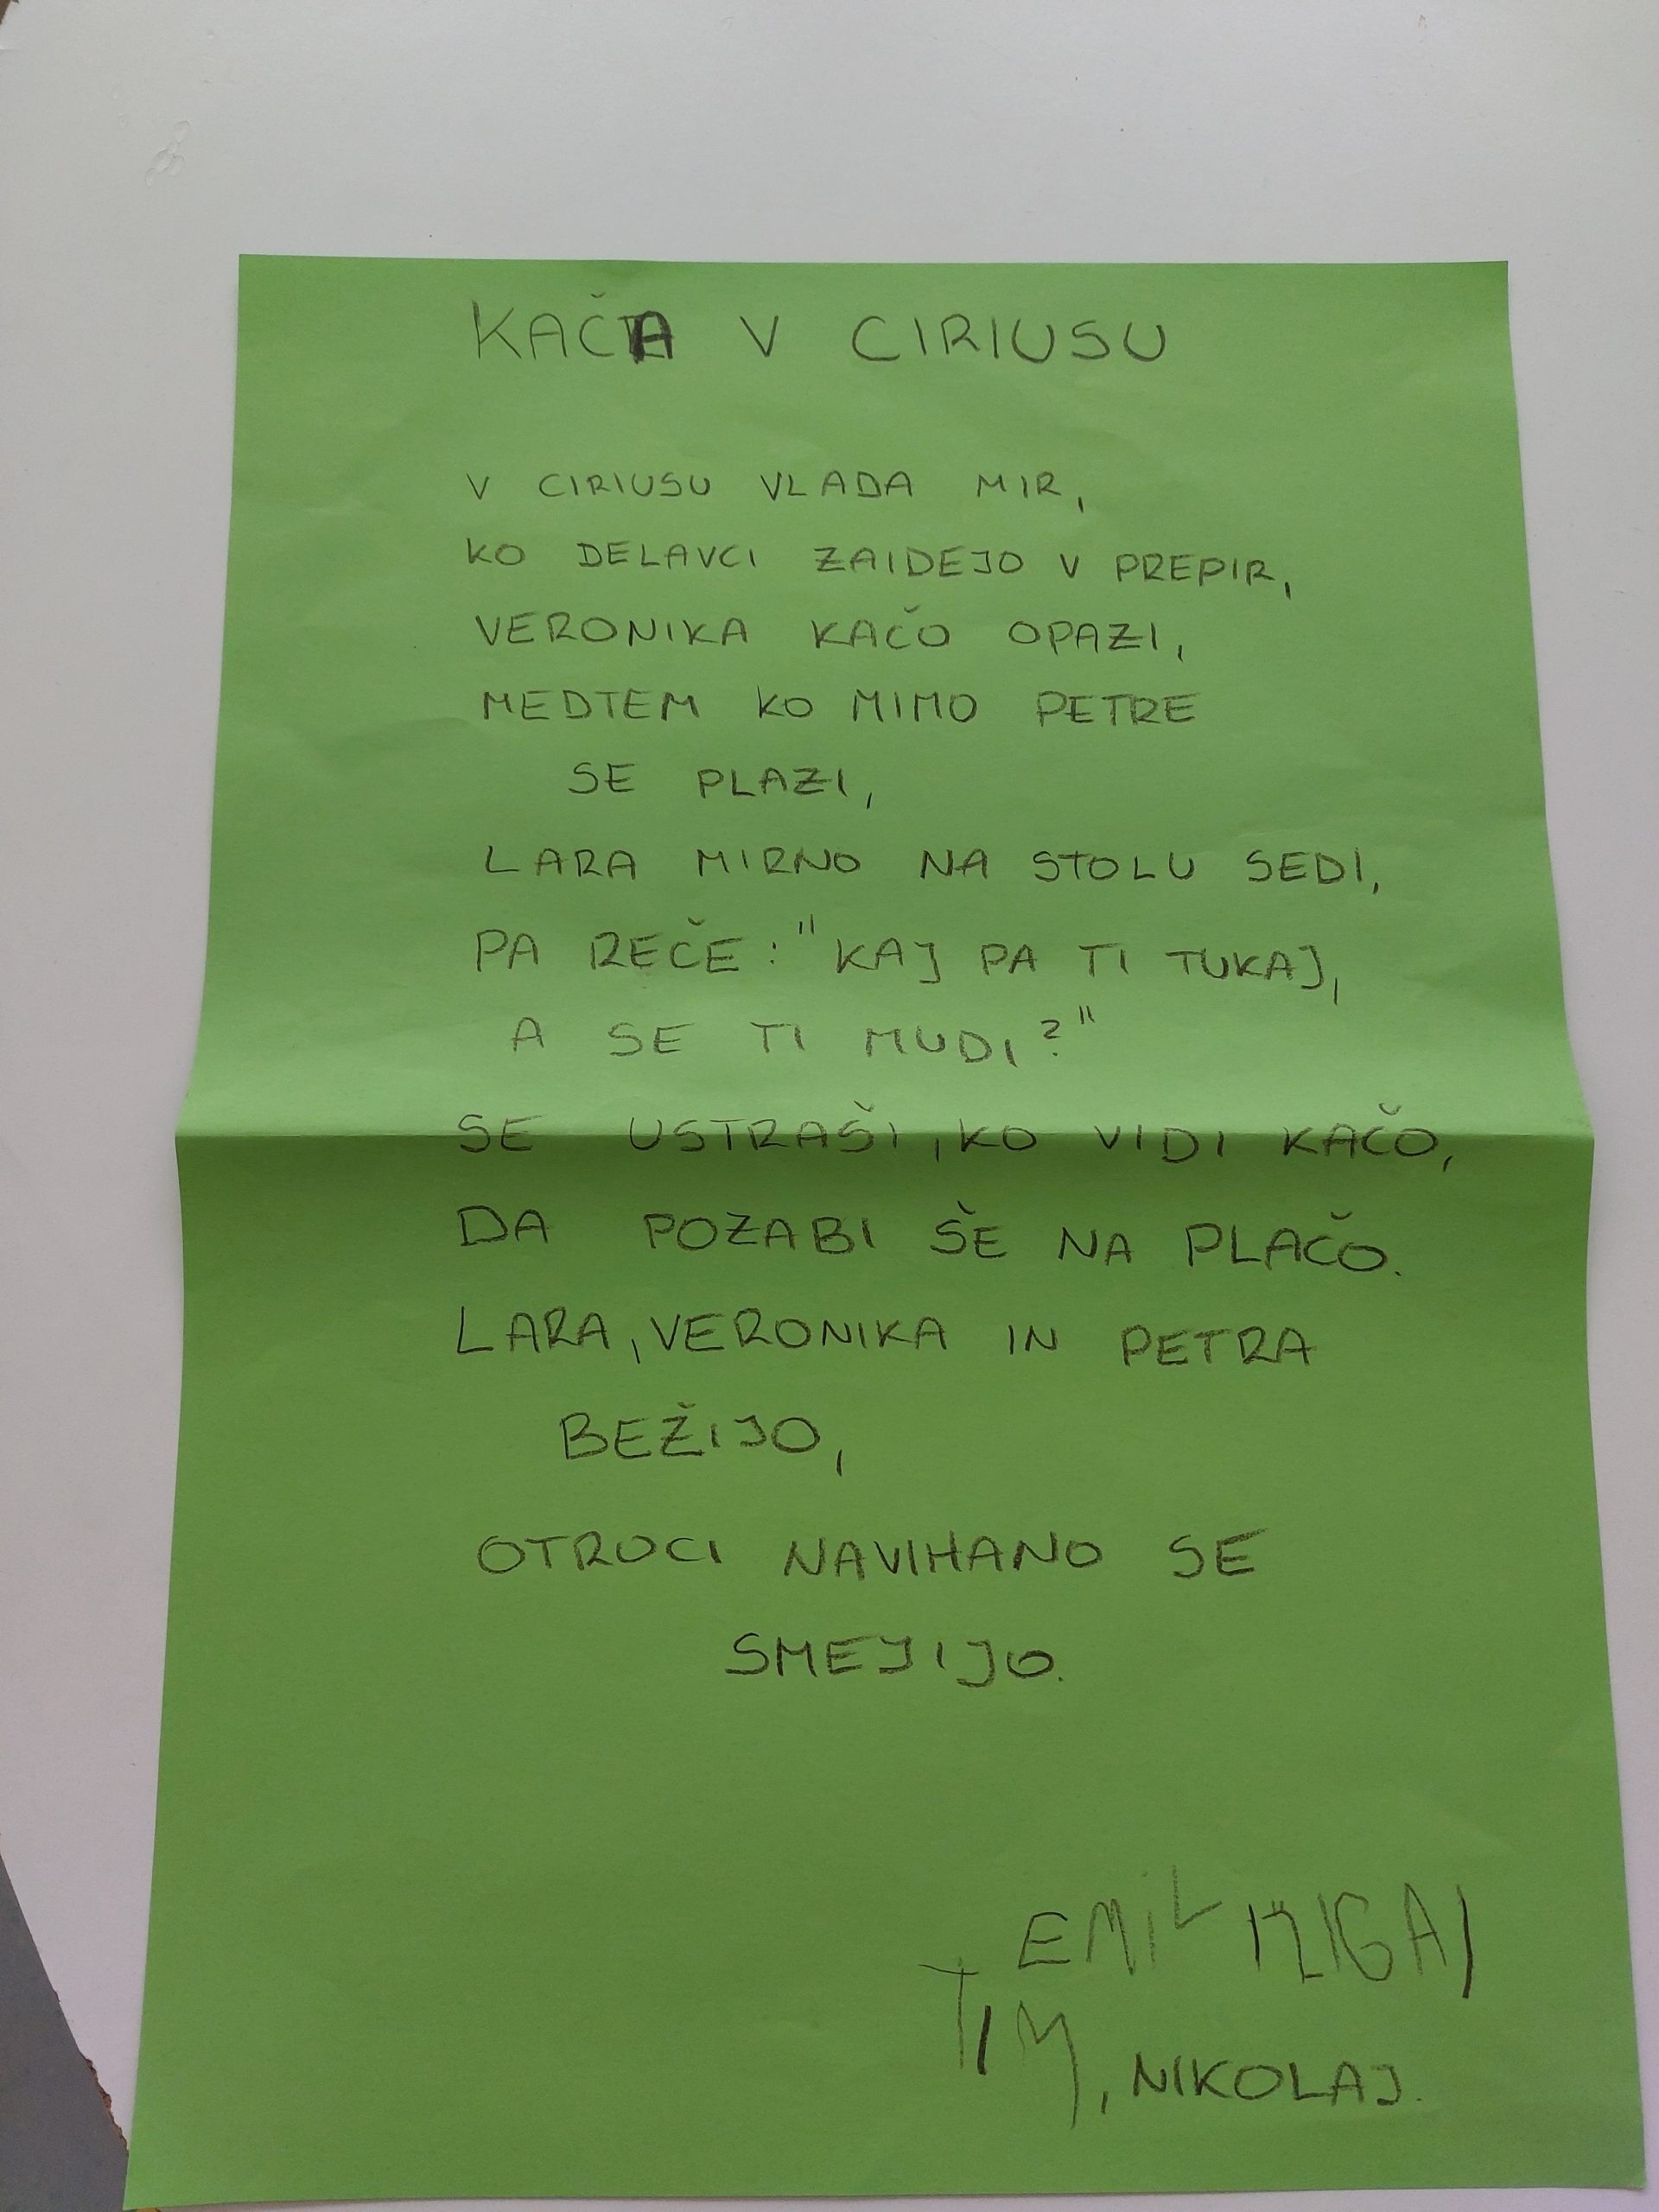 KAČA V CIRIUSU
V CIRIUSU VLADA MIR,
KO DELAVCI ZAIDEJO V PREPIR,
VERONIKA KAČO OPAZI,
MEDTEM KO MIMO PETRE
SE PLAZI,
LARA MIRNO NA STOLU SEDI,
PA REČE: "KAJ PA TI TUKAJ,
A SE TI MUDI?"
SE USTRAŠI, KO VIDI KAČO,
DA POZABI ŠE NA PLAČO.
LARA, VERONIKA IN PETRA
BEŽIJO,
OTROCI NAVIHANO SE
SMEJIJO.
EMIL, ŽIGA,
TIM, NIKOLAJ.